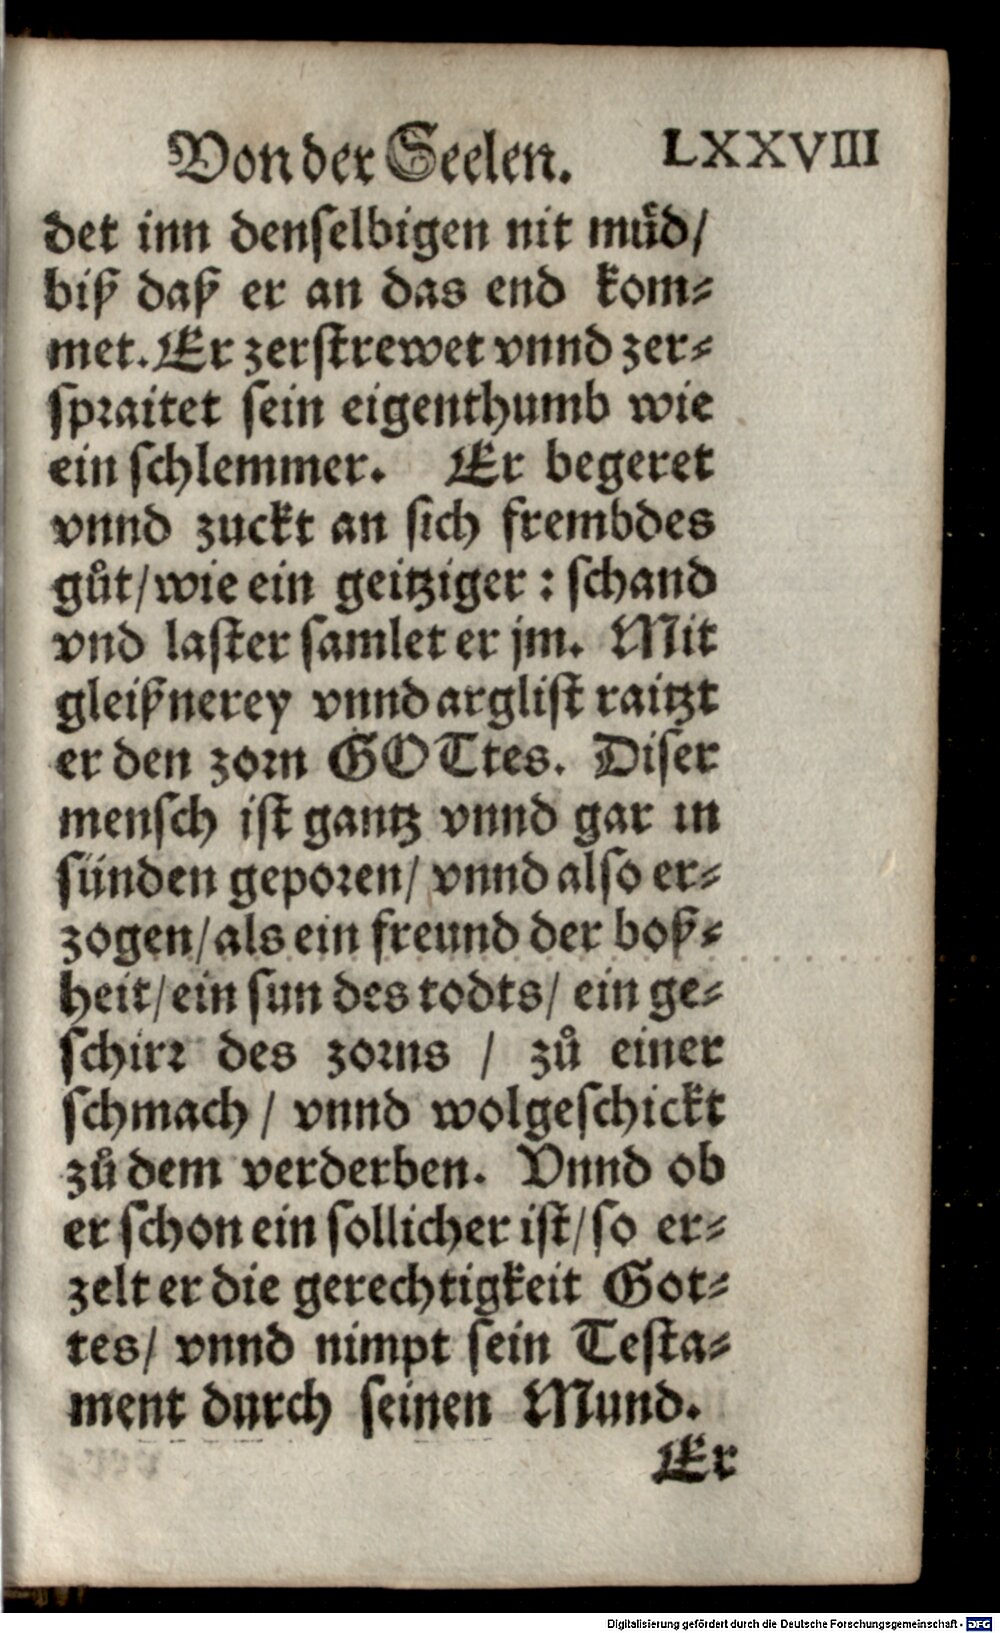 Von der Seelen. LXXVIII
det inn denselbigen nit müd/
biß daß er an das end kom⸗
met. Er zerstrewet vnnd zer⸗
spraitet sein eigenthumb wie
ein schlemmer. Er begeret
vnnd zuckt an sich frembdes
gůt/ wie ein geitziger: schand
vnd laster samlet er jm. Mit
gleißnerey vnnd arglist raitzt
er den zorn GOTtes. Diser
mensch ist gantz vnnd gar in
sünden geporen/ vnnd also er⸗
zogen/ als ein freund der boß⸗
heit/ ein sun des todts/ ein ge⸗
schirr des zorns / zů einer
schmach/ vnnd wolgeschickt
zů dem verderben. Vnnd ob
er schon ein sollicher ist/ so er⸗
zelt er die gerechtigkeit Got⸗
tes/ vnnd nimpt sein Testa⸗
ment durch seinen Mund.
Er
Digitalisierung gefördert durch die Deutsche Forschungsgemeinschaft - DFG